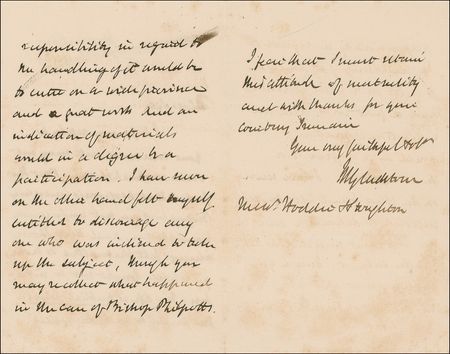 responsibility in regard to
the handling of it would be
to enter on a wide province
and a great work and an
indication of materials
would in a degree be a
participation. I have never
on the other hand felt myself
entitled to discourage any
one who was inclined to take
up the subject, though you
may recollect what happened
in the case of Bishop Philpotts.
I fear that I must retain
this attitude of neutrality
and with thanks for your
courtesy I remain
Your very faithful &
WGladstone
Messrs. Hodder & Stoughton